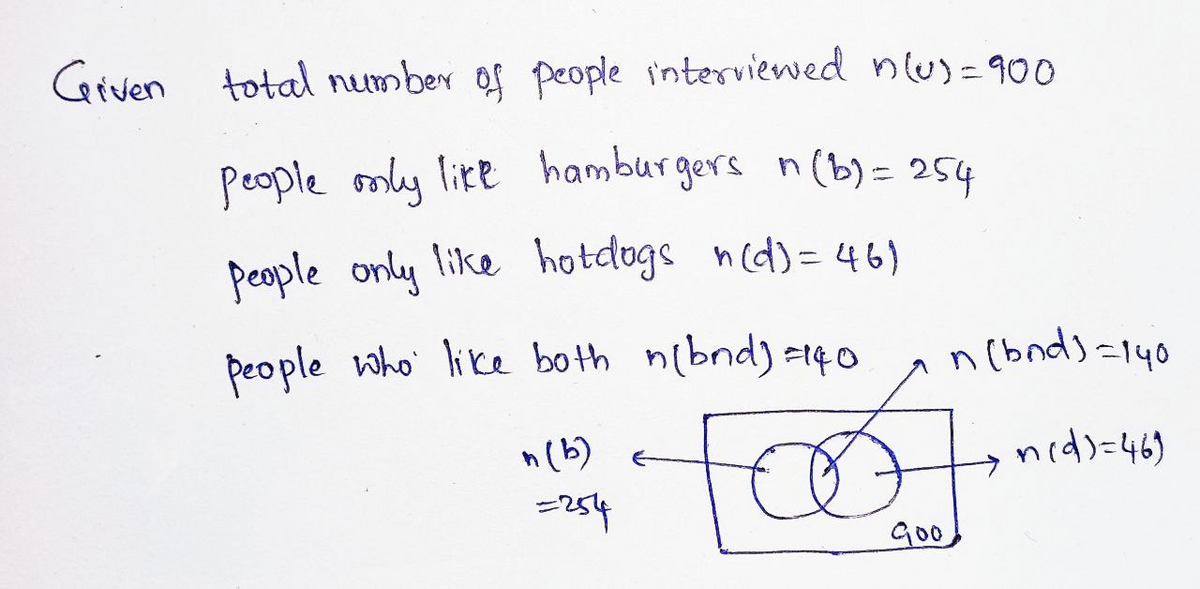 Given total number of people interviewed n(u)=900
people only like hamburgers n(b)= 254
people only like hotdogs n(d)= 461
people who like both n(b∩d)=140
n(b∩d)=140
n(b)
=254
n(d)=461
900